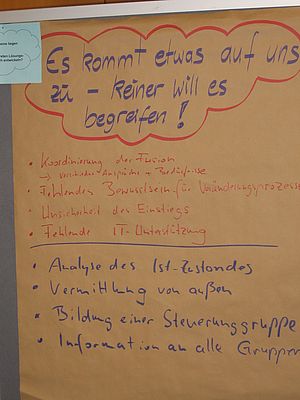 Es kommt etwas auf uns
zu – keiner will es
begreifen!
• Koordinierung der Fusion
→ verschiedene Ansprüche + Bedürfnisse
• Fehlendes Bewusstsein für Veränderungsprozesse
• Unsicherheit des Einstiegs
• Fehlende IT-Unterstützung
• Analyse des Ist-Zustandes
• Vermittlung von außen
• Bildung einer Steuerungsgruppe
• Information an alle Gruppen